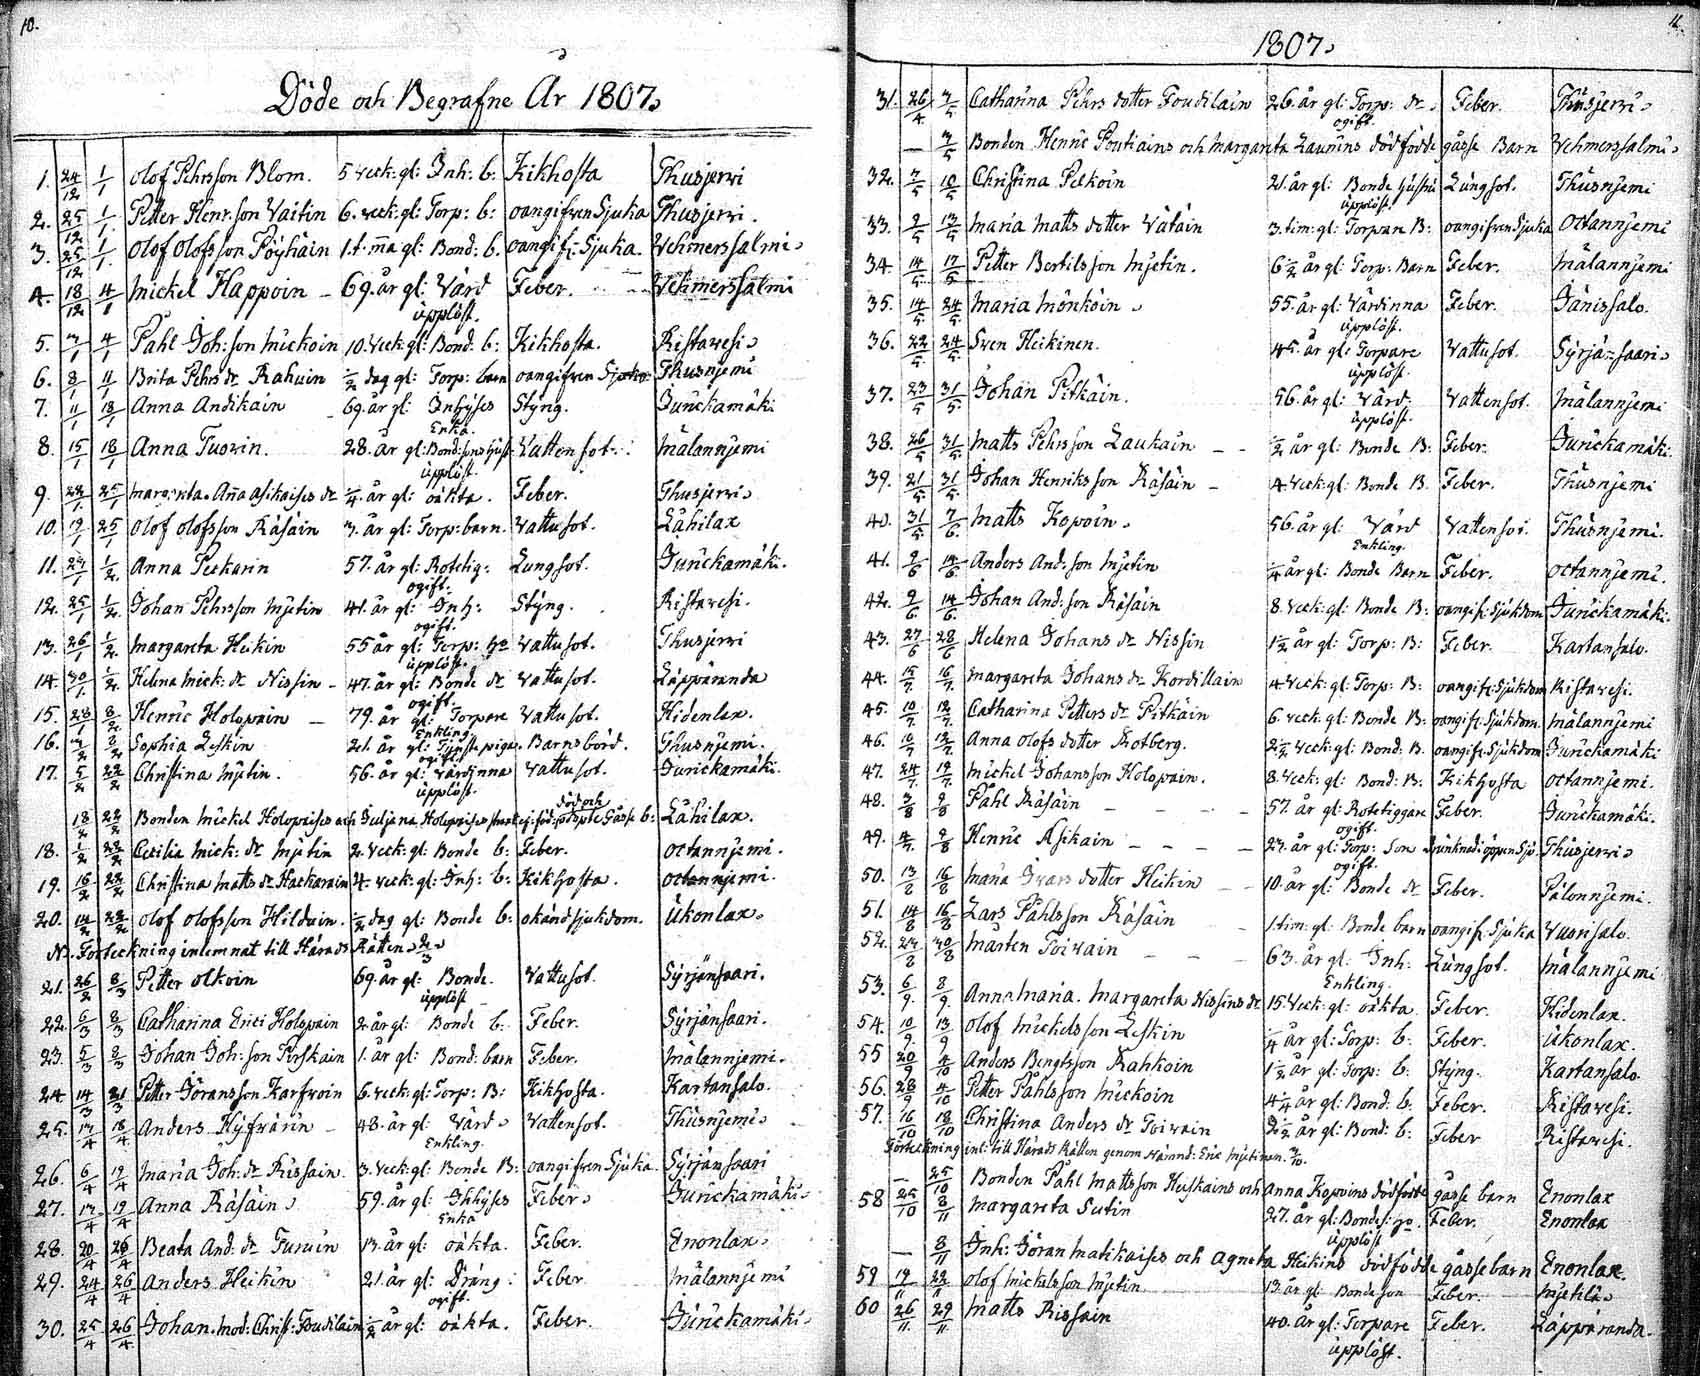 10.
Döde och Begrafne År 1807.
1. 24/12 1/1 Olof Pehrsson Blom. 5 veck: gl: Inh: b: Kikhosta Thusjerwi
2. 25/12 1/1 Petter Henr: son Vaitin 6. veck: gl: Torp: b: oangifven Sjuka Thusjerwi.
3. 25/12 1/1 Olof Olofsson Pöyhäin 1. t. gl: Bond. b. oangif: Sjuka. Vehmerssalmi.
4. 18/12 4/1 Mickel Happoin 69. år gl: Värd Feber. Vehmerssalmi
upplöst.
5. 3/1 4/1 Påhl Joh: son Mickoin 10. veck: gl: Bond: b: Kikhosta. Ristavesi.
6. 8/1 11/1 Brita Pehrs dr Rahuin ½ dag gl: Torp: barn oangifven Sjuka Thusnjemi
7. 11/1 18/1 Anna Andikain 69. år gl: Inhyses Styng. Jurickamäki
Enka.
8. 15/1 18/1 Anna Tuovin. 28. år gl: Bond: sons hust: Vattensot. Mälannjemi
upplöst.
9. 22/1 25/1 Margreta Aña Asikaises dr ¼ år gl: oäkta. Feber. Thusjerwi.
10. 19/1 25/1 Olof Olofsson Räsäin 3. år gl: Torp: barn. Vattusot. Lähilax
11. 29/1 1/2 Anna Pekkarin 57. år gl: Rotetig: Lungsot. Jurickamäki.
ogift.
12. 25/1 1/2 Johan Pehrsson Mjetin 41. år gl: Inh: Styng. Ristavesi.
ogift.
13. 26/1 1/2 Margareta Heikin 55 år gl: Torp: Vattusot. Thusjerwi
upplöst.
14. 30/1 1/2 Helena Mick: dr Nissin 47. år gl: Bonde dr Vattusot. Läppäranda
ogift.
15. 28/1 8/2 Henric Holopain 79. år gl: Torpare Vattusot. Hidenlax.
Enkling.
16. 3/2 8/2 Sophia Leskin 21. år gl: Tjenste piga. Barnsbörd. Thusnjemi.
ogift.
17. 5/2 22/2 Christina Mjetin. 56. år gl: Värdinna Vattusot. Jurickamäki.
upplöst.
18/2 22/2 Bonden Mickel Holopaises och Juliana Holopaises död och Gåsse b: Lähilax.
18. 1/2 22/2 Cecilia Mick: dr Mjetin 2. veck: gl: Bonde b: Feber. Octannjemi.
19. 16/2 22/2 Christina Matts dr Hackarain 4. veck: gl: Inh: b: Kikhosta. Octannjemi.
20. 14/2 22/2 Olof Olofsson Hilduin. ½ dag gl: Bonde b: okänd sjukdom. Ukonlax.
Nr. Förteckning inlemnat till Härads Rätten 2/3
21. 26/2 8/3 Petter Olkoin 69. år gl: Bonde. Vattusot. Syrjänsaari.
upplöst
22. 6/3 8/3 Catharina Erici Holopain 2. år gl: Bonde b: Feber. Syrjänsaari.
23. 5/3 8/3 Johan Joh: son Pirskain 1. år gl: Bond: barn Feber. Mälannjemi.
24. 14/3 31/3 Petter Göransson Karfvoin 6. veck: gl: Torp: B: Kikhosta. Kartansalo.
25. 17/4 18/4 Anders Hyfvärin 48. år gl: Värd Vattensot. Thusnjemi.
Enkling.
26. 6/4 19/4 Maria Joh: dr Rissain. 3. veck: gl: Bonde B: oangifven Sjuka. Syrjänsaari
27. 17/4 19/4 Anna Räsäin 59. år gl: Inhyses Feber. Jurickamäki.
Enka
28. 20/4 26/4 Beata And: dr Turuin 13. år gl: oäkta. Feber. Enonlax.
29. 24/4 26/4 Anders Heikin 21. år gl: Dräng: Feber Mälannjemi
ogift.
30. 25/4 26/4 Johan. mod: Christ: Foudilain ½ år gl: oäkta. Feber. Jurickamäki.
11.
1807.
31. 26/4 3/5 Catharina Pehrs dotter Foudilain 26. år gl: Torp: dr. Feber. Thusjerwi.
ogift.
— 3/5 Bonden Henric Poutiains och Margareta Laurins dödfödde gåsse Barn Vehmerssalmi.
32. 7/5 10/5 Christina Pelkoin 21. år gl: Bonde hustru Lungsot. Thusnjemi
upplöst.
33. 9/5 17/5 Maria Matts dotter Vätäin 3. tim: gl: Torpare B: oangifven Sjuka Octannjemi
34. 14/5 17/5 Petter Bertilsson Mjetin. 6½ år gl: Torp: Barn Feber. Mälannjemi
35. 14/5 24/5 Maria Mönköin 55. år gl: Värdinna Feber. Jänissalo.
upplöst.
36. 22/5 24/5 Sven Heikinen. 45. år gl: Torpare Vattusot. Syrjänsaari.
upplöst.
37. 23/5 31/5 Johan Pitkäin. 56. år gl: Värd. Vattensot. Mälannjemi
upplöst.
38. 26/5 31/5 Matts Pehrsson Laukain ½ år gl: Bonde B: Feber. Jurickamäki.
39. 21/5 31/5 Johan Henriksson Räsäin 4. veck: gl: Bonde B. Feber. Thusnjemi
40. 31/5 7/6 Matts Kopoin. 56. år gl: Värd Vattensot. Thusnjemi.
Enkling.
41. 9/6 14/6 Anders And: son Mjetin ¼ år gl: Bonde Barn Feber. Octannjemi.
42. 9/6 14/6 Johan And: son Räsäin 8. veck: gl: Bonde B: oangif: Sjukdom Jurickamäki.
43. 27/6 28/6 Helena Johans dr Nissin 1½ år gl: Torp: B: Feber. Kartansalo.
44. 15/7 16/7 Margareta Johans dr Kordillain 4. veck: gl: Torp: B: oangif: Sjukdom Ristavesi.
45. 10/7 12/7 Catharina Petters dr Pitkäin 6. veck: gl: Bonde B: oangif: Sjukdom. Mälannjemi
46. 10/7 12/7 Anna Olofs dotter Rotberg. 2½ veck: gl: Bond: B. oangif: Sjukdom Jurickamäki
47. 24/7 19/7 Mickel Johansson Holopain. 8. veck: gl: Bond: B: Kikhosta Octannjemi.
48. 3/8 9/8 Påhl Räsäin 57. år gl: Rotetiggare Feber. Jurickamäki.
ogift.
49. 4/7 9/8 Henric Asikain 27. år gl: Torp: Son Drunknad i öppen Sjö. Thusjerwi.
ogift.
50. 13/8 16/8 Maria Ivars dotter Heikin 10. år gl: Bonde dr Feber. Pälonnjemi.
51. 14/8 16/8 Lars Påhlsson Räsäin 1. tim: gl: Bonde barn oangif: Sjuka Vuorisalo.
52. 27/8 30/8 Mårten Toivain 63. år gl: Inh: Lungsot. Mälannjemi
Enkling.
53. 6/9 8/9 Anna Maria. Margareta Nissins dr 15. veck: gl: oäkta Feber. Hidenlax.
54. 10/9 13/9 Olof Mickelsson Leskin ¼ år gl: Torp: b: Feber. Ukonlax.
55 20/9 4/10 Anders Bengtsson Kahkoin 1½ år gl: Torp: b: Styng. Kartansalo
56. 28/9 4/10 Petter Påhlsson Mickoin 4¼ år gl: Bond: b: Feber. Ristavesi.
57. 16/10 18/10 Christina Anders dr Toivain 2½ år gl: Bond: b: Feber Ristavesi.
Förteckning inl: till Härads Rätten genom Nämnd: Eric Mjetinen.
— 25/10 Bonden Påhl Mattsson Heiskains och Anna Kopoins dödfödde gåsse barn Enonlax
58 25/10 8/11 Margareta Sutin 27. år gl: Bondes: Feber. Enonlax
upplöst
— 8/11 Inh: Göran Matikaises och Agneta Heikins dödfödde gåsse barn Enonlax.
59 19/11 22/11 Olof Mickelsson Mjetin 13. år gl: Bonde son Feber. Mjetilä.
60 26/11 29/11 Matts Rissain 40. år gl: Torpare Feber. Läppäranda.
upplöst.